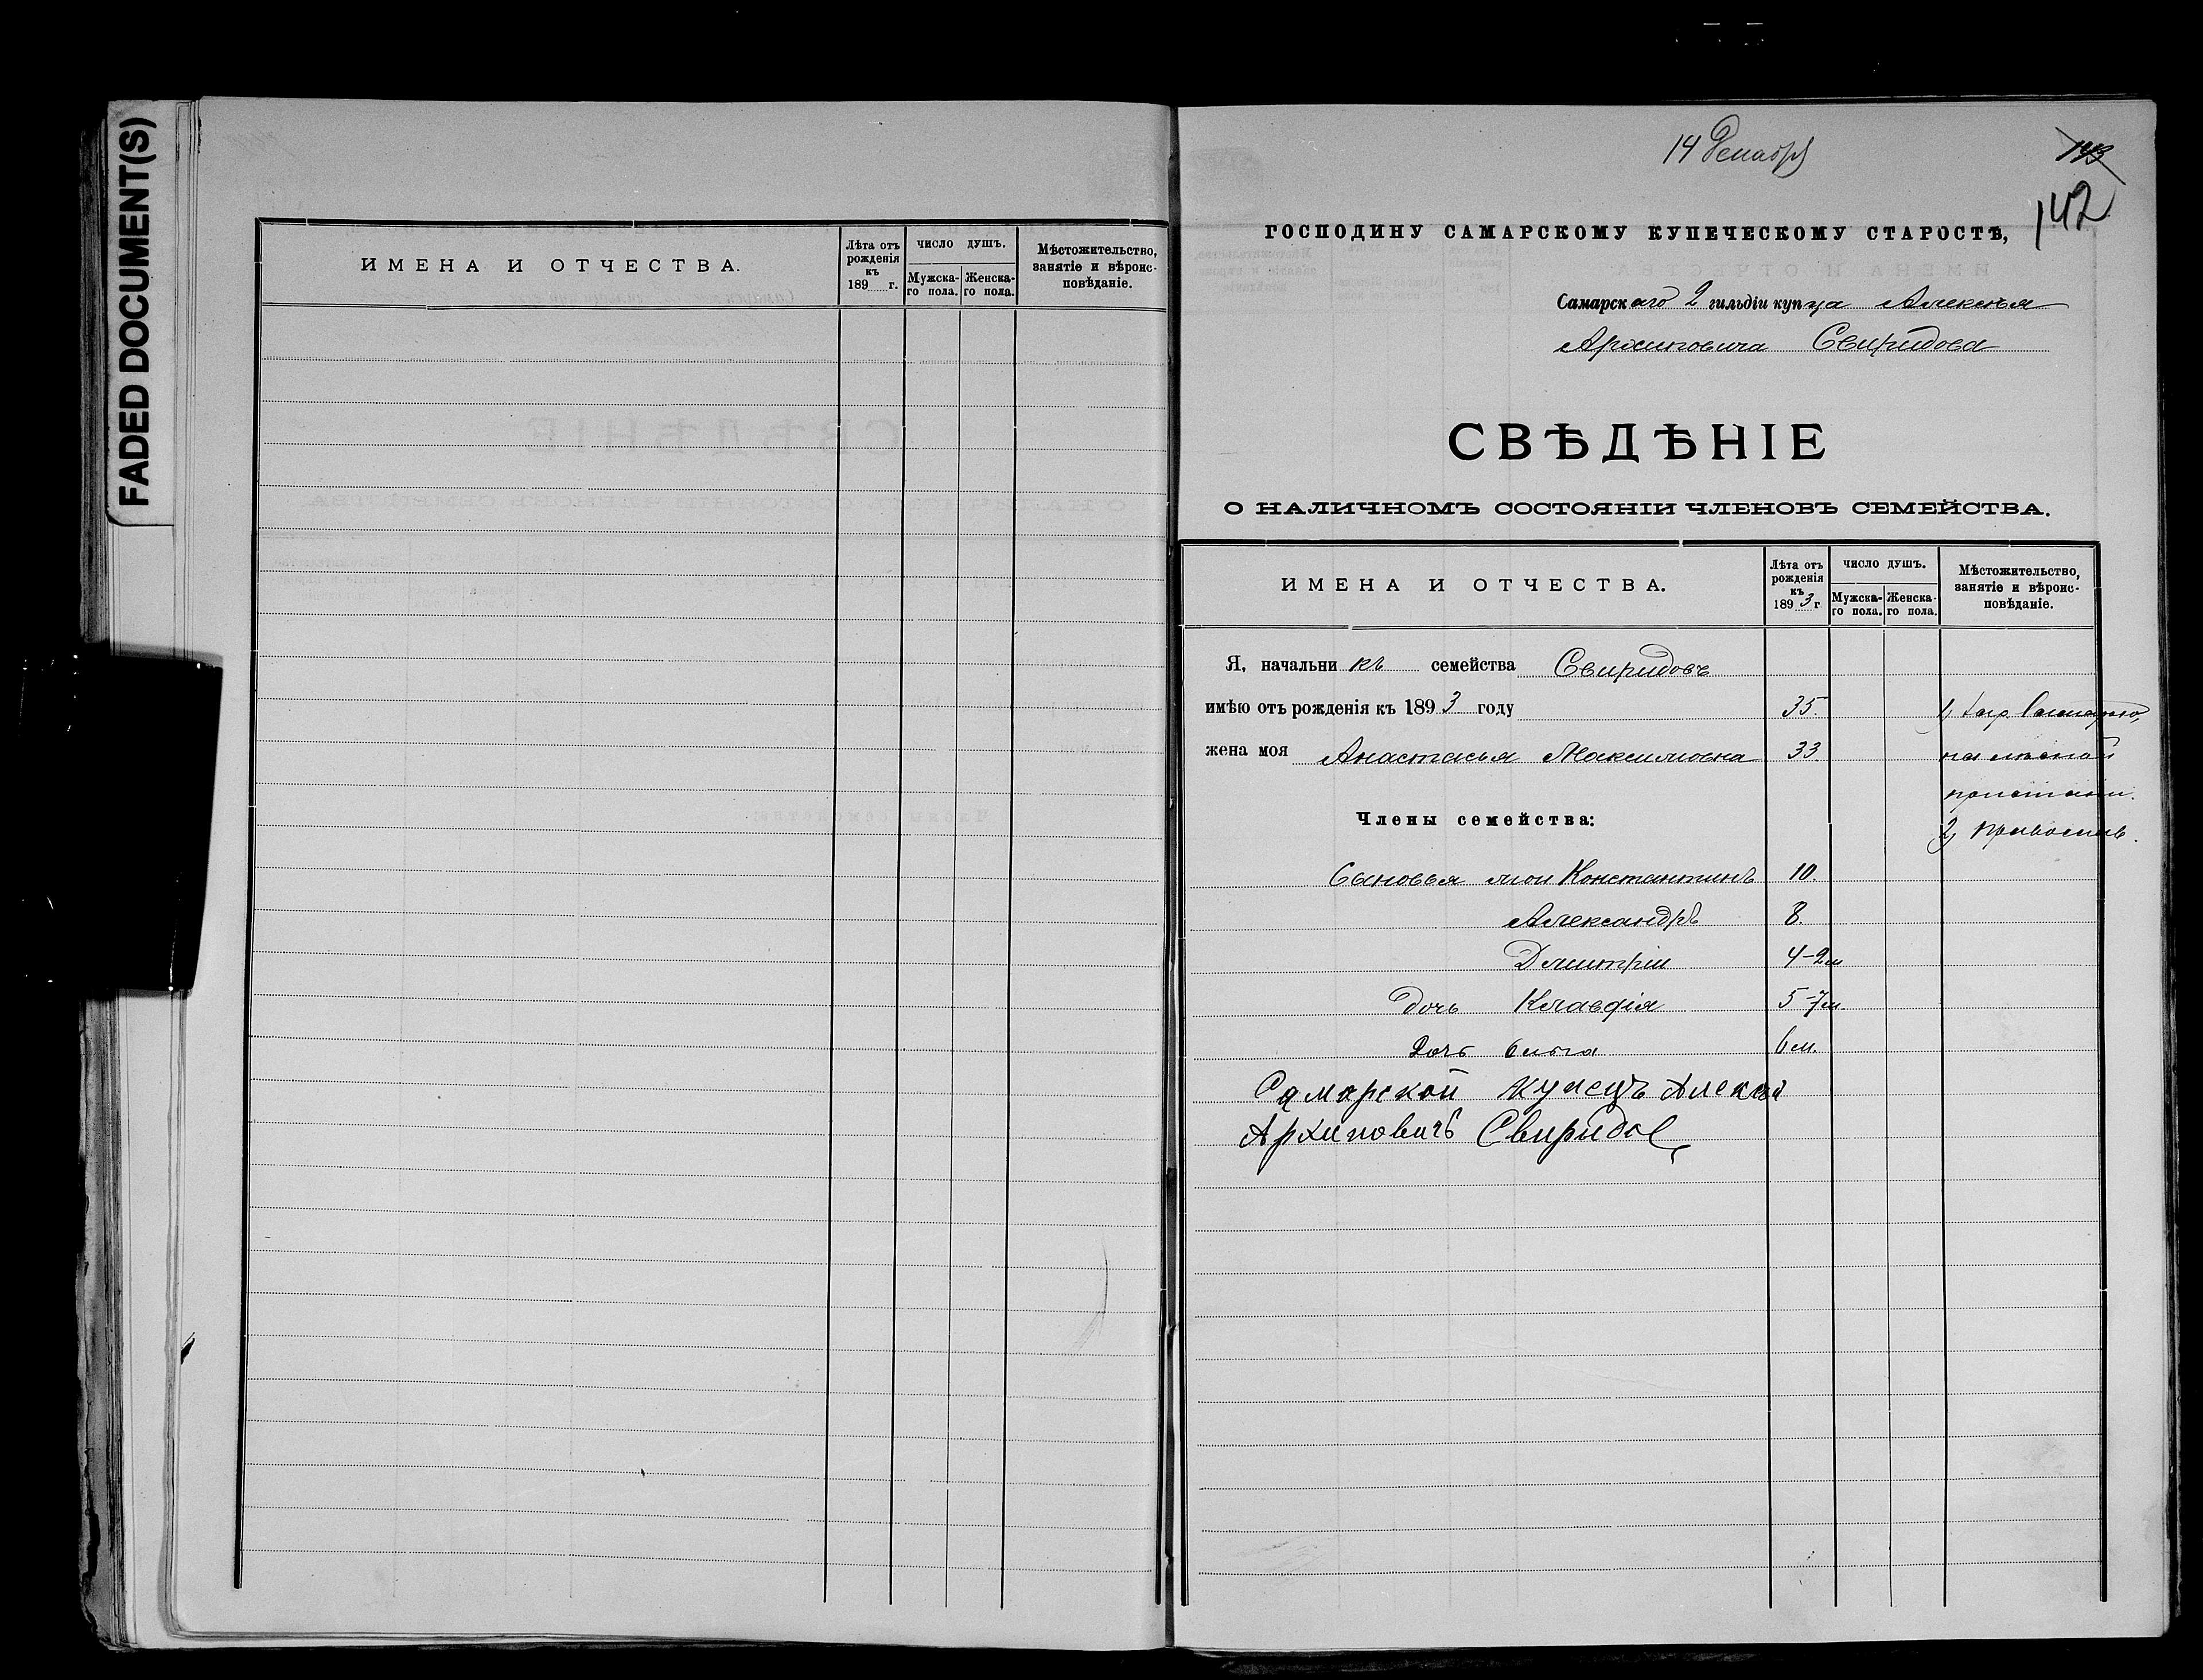 FADED DOCUMENT(S)
ИМЕНА И ОТЧЕСТВА.
Лѣта отъ рожденія къ 189 г.
ЧИСЛО ДУШЪ.
Мужска-го пола.
Женска-го пола.
Мѣстожительство, занятіе и вѣроис-повѣданіе.
14 Декабря
143
142
ГОСПОДИНУ САМАРСКОМУ КУПЕЧЕСКОМУ СТАРОСТѢ,
Самарскаго 2 гильдіи купца Алексѣя
Архиповича Свиридова
СВѢДѢНІЕ
О НАЛИЧНОМЪ СОСТОЯНІИ ЧЛЕНОВЪ СЕМЕЙСТВА.
ИМЕНА И ОТЧЕСТВА.
Лѣта отъ рожденія къ 1893 г
ЧИСЛО ДУШЪ.
Мужска-го пола.
Женска-го пола.
Мѣстожительство, занятіе и вѣроис-повѣданіе.
Я, начальникъ семейства Свиридовъ
имѣю отъ рожденія къ 1893 году 35. 1,
жена моя Анастасья Максимовна 33. на лѣсной
пристани.
Члены семейства: 2,
Сыновья мои Константинъ 10.
Александръ 8.
Дмитрій 4-2м
дочь Клавдія 5-7м.
Дочь 6м.
Самарской Купецъ Алексѣй
Архиповичъ Свиридов